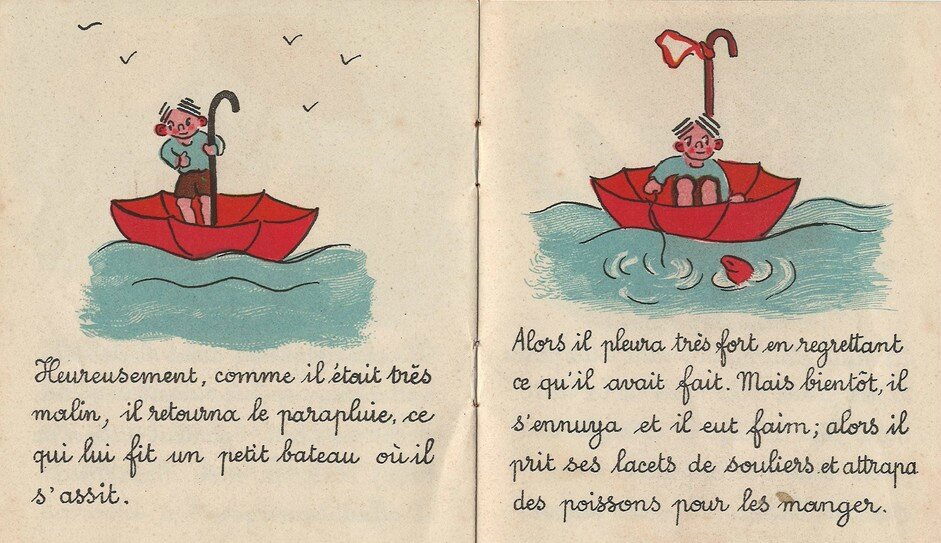 Heureusement, comme il était très
malin, il retourna le parapluie, ce
qui lui fit un petit bateau où il
s'assit.
Alors il pleura très fort en regrettant
ce qu'il avait fait. Mais bientôt, il
s'ennuya et il eut faim; alors il
prit ses lacets de souliers et attrapa
des poissons pour les manger.